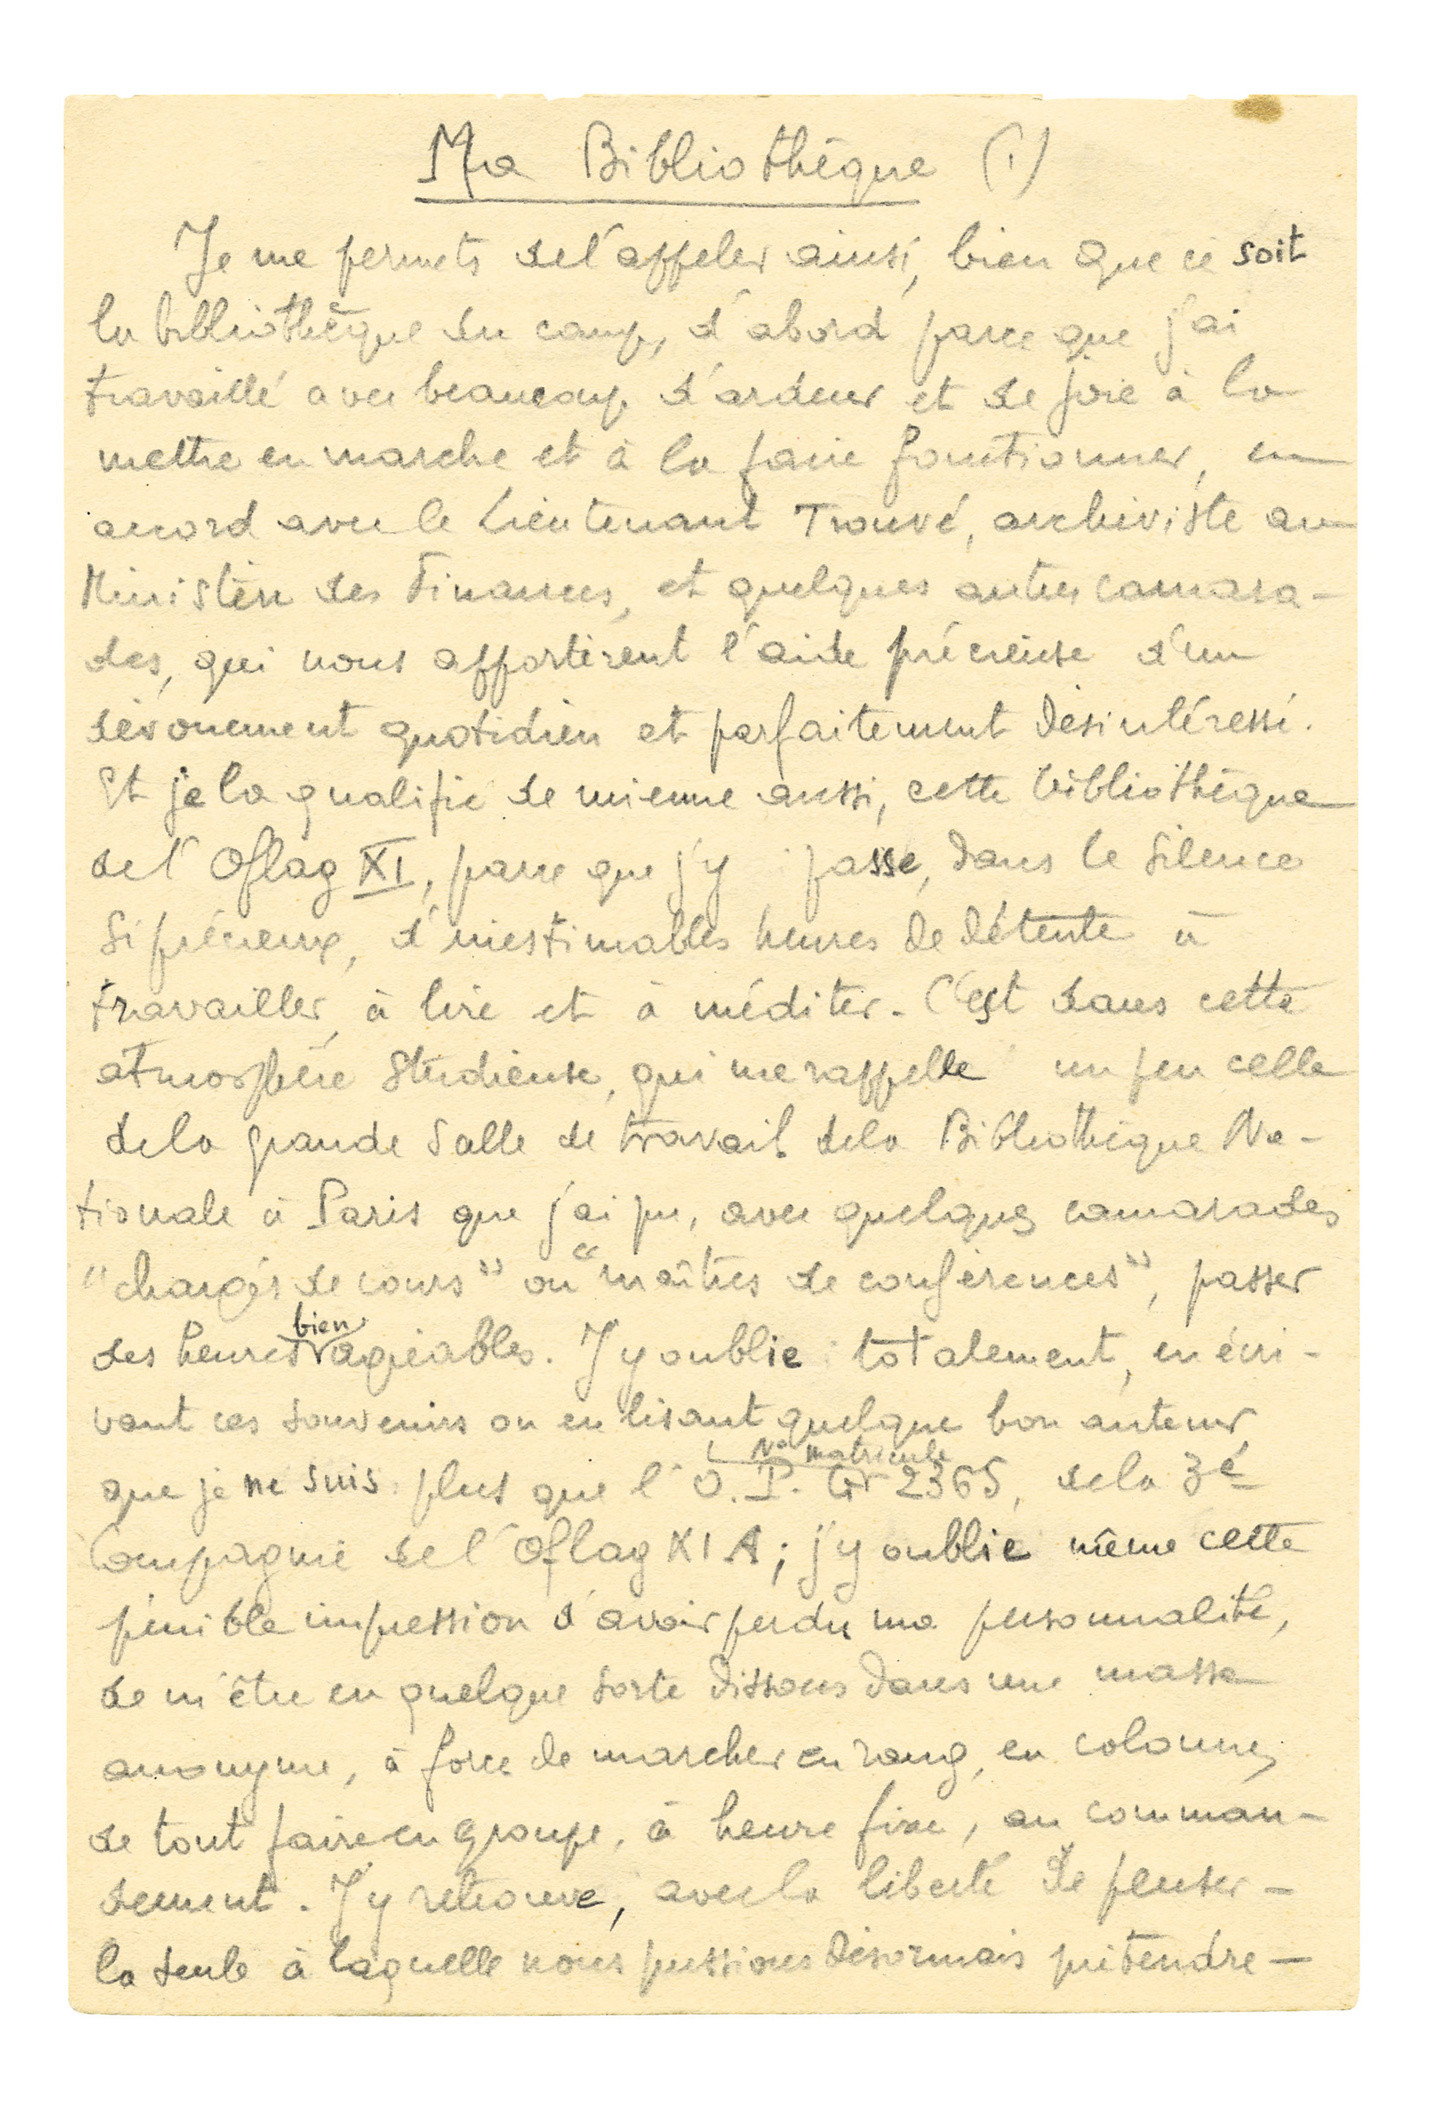 Ma Bibliothèque (1)
Je me permets de l'appeler ainsi, bien que ce soit
la bibliothèque du camp, d'abord parce que j'ai
travaillé avec beaucoup d'ardeur et de joie à la
mettre en marche et à la faire fonctionner, en
accord avec le Lieutenant Trouvé, archiviste au
Ministère des Finances, et quelques autres camara-
des, qui nous apportèrent l'aide précieuse d'un
dévouement quotidien et parfaitement désintéressé.
Et je la qualifie de mienne aussi, cette bibliothèque
de l'Oflag XI, parce que j'y passe, dans le silence
si précieux, d'inestimables heures de détente à
travailler, à lire et à méditer. C'est dans cette
atmosphère studieuse, qui me rappelle un peu celle
de la grande salle de travail de la Bibliothèque Na-
tionale à Paris que j'ai pu, avec quelques camarades
"chargés de cours" ou "maîtres de conférences", passer
bien
des heures agréables. J'y oublie totalement, en écri-
vant ces souvenirs ou en lisant quelque bon auteur
No matricule
que je ne suis plus que l'O.P. Gr 2365, de la 3e
Compagnie de l'Oflag XI A; j'y oublie même cette
pénible impression d'avoir perdu ma personnalité,
de m'être en quelque sorte dissous dans une masse
anonyme, à force de marcher en rang, en colonne,
de tout faire en groupe, à heure fixe, au comman-
dement. J'y retrouve, avec la liberté de penser -
la seule à laquelle nous pussions désormais prétendre -